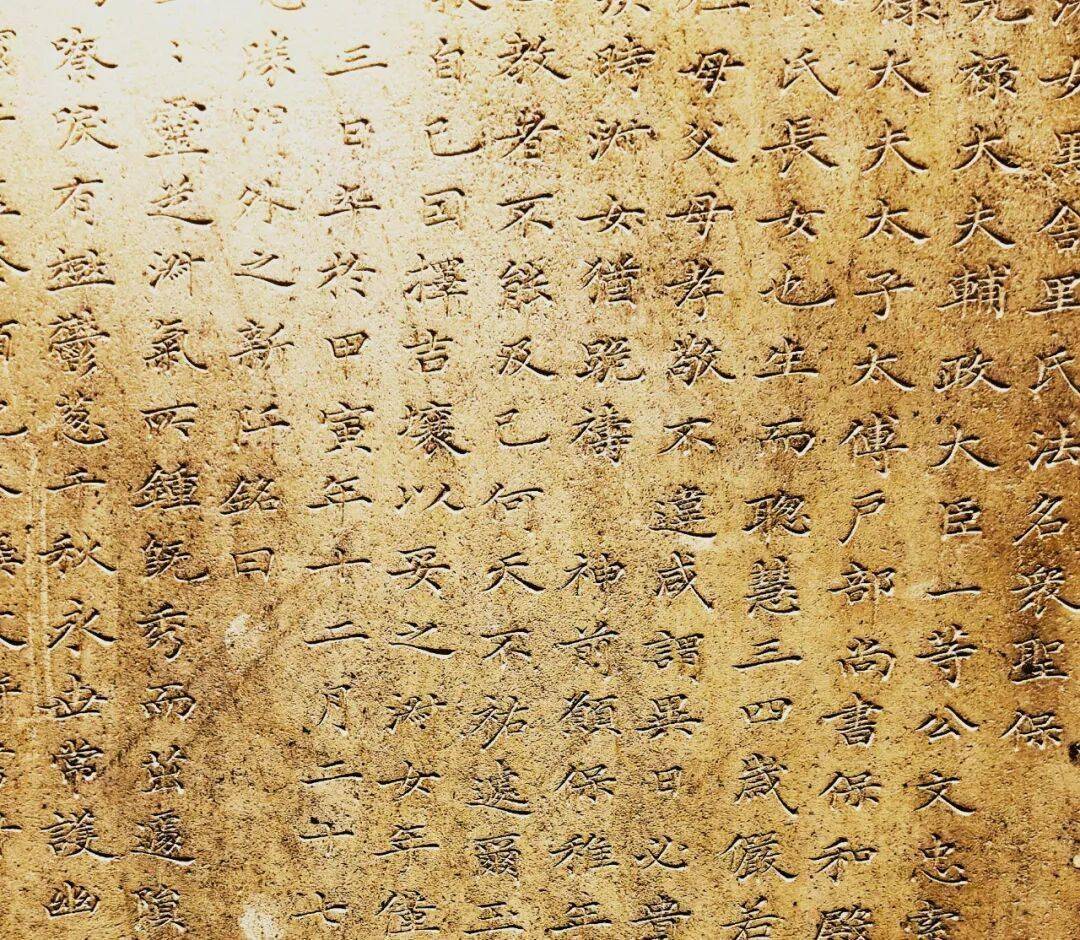 女黑舍里氏法名衆聖保
光祿大夫輔 政大臣一等公文忠索
祿大夫太子太傅戶部尚書保和殿
氏長女也生而聰慧三四歲儼若
母父母孝敬不違咸謂異日必貴
疾時淑女猶跪禱 神前願保稚年
敎者不能及已何天不祐遽爾三
自已囙擇吉壤以妥之淑女年僅
三日卒於甲寅年十二月二十七
外之新阡銘曰
靈芝淑氣所鍾旣秀而茁遽隕
嘹唳有樾鬱蔥千秋永世常護幽